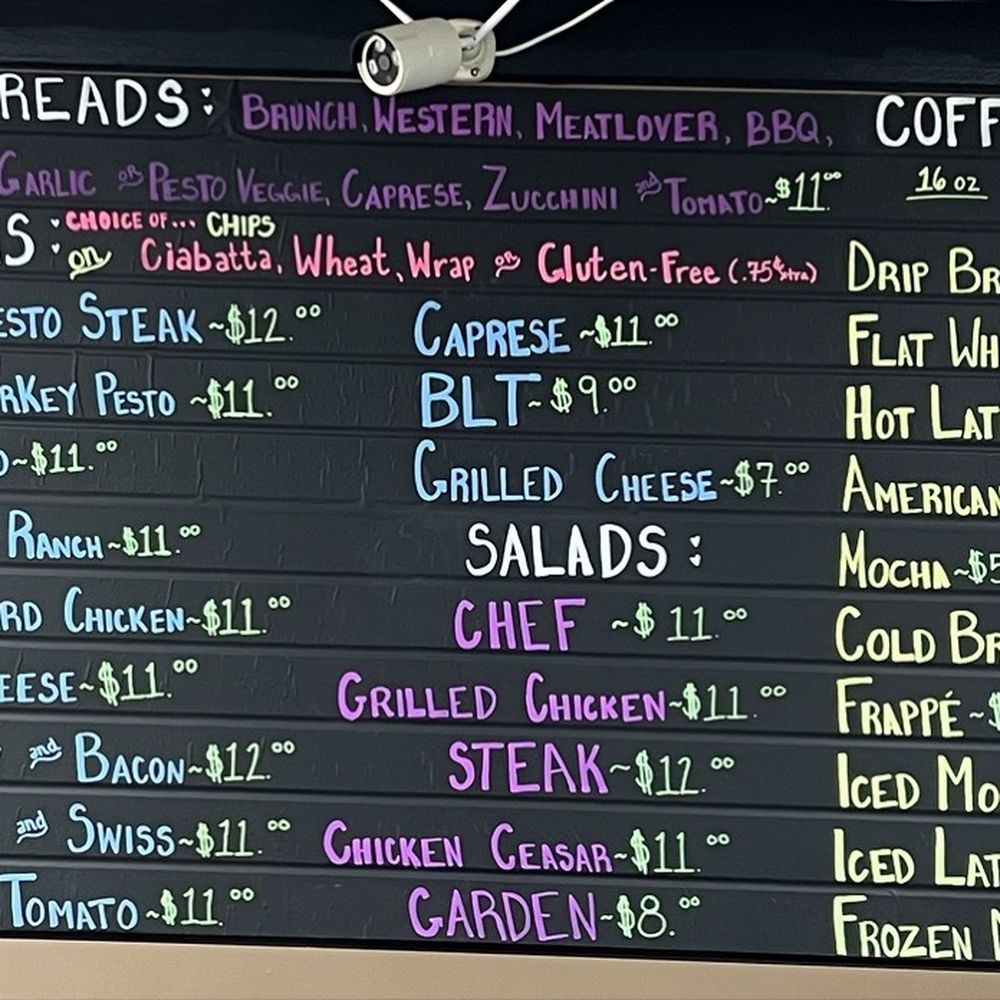 READS: BRUNCH, WESTERN, MEATLOVER, BBQ,
GARLIC OR PESTO VEGGIE, CAPRESE, ZUCCHINI and TOMATO~$11.00
S: CHOICE OF... CHIPS
on Ciabatta, Wheat, Wrap OR Gluten-Free (.75¢ xtra)
ESTO STEAK~$12.00
RKEY PESTO ~$11.00
O~$11.00
RANCH~$11.00
RD CHICKEN~$11.00
EESE~$11.00
and BACON~$12.00
and SWISS~$11.00
TOMATO~$11.00
CAPRESE ~$11.00
BLT~$9.00
GRILLED CHEESE~$7.00
SALADS:
CHEF ~$11.00
GRILLED CHICKEN~$11.00
STEAK~$12.00
CHICKEN CEASAR~$11.00
GARDEN~$8.00
COFF
16 OZ
DRIP BR
FLAT WH
HOT LAT
AMERICAN
MOCHA~$5
COLD BR
FRAPPÉ~$
ICED MO
ICED LAT
FROZEN